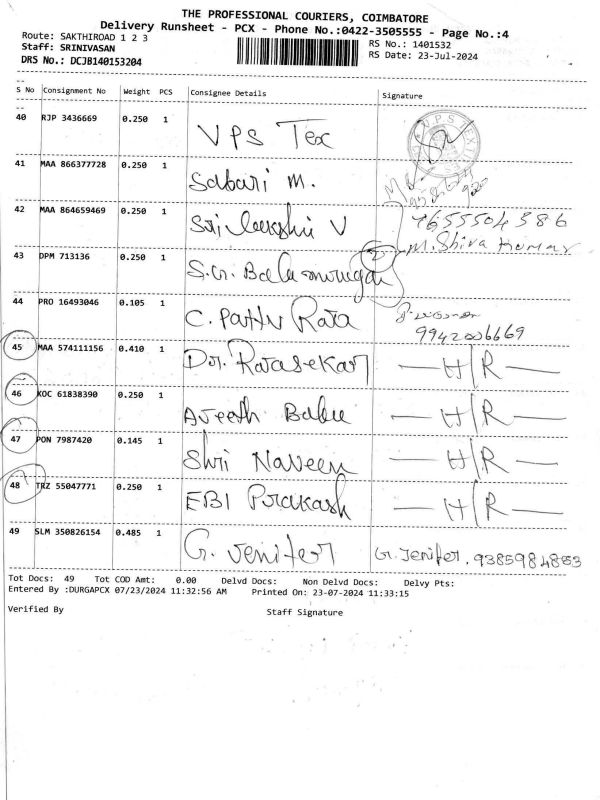 THE PROFESSIONAL COURIERS, COIMBATORE
Delivery Runsheet - PCX - Phone No.:0422-3505555 - Page No.:4
Route: SAKTHIROAD 1 2 3
RS No.: 1401532
Staff: SRINIVASAN
RS Date: 23-Jul-2024
DRS No.: DCJB140153204
S No Consignment No Weight PCS Consignee Details Signature
40 RJP 3436669 0.250 1 VPS Tex
41 MAA 866377728 0.250 1 Sabari M.
42 MAA 864659469 0.250 1 Sri V
7655504386
M. Shiva Kumar
43 DPM 713136 0.250 1 S.G. Balamurugan
44 PRO 16493046 0.105 1 C. Pattu Raja
9942006669
45 MAA 574111156 0.410 1 Dr. Rajasekar — H/R —
46 KOC 61838390 0.250 1 Ajeeth Babu — H/R —
47 PON 7987420 0.145 1 Shri Naveen — H/R —
48 TRZ 55047771 0.250 1 EBI Prakash — H/R —
49 SLM 350826154 0.485 1 G. Jenifer G. Jenifer.
Tot Docs: 49 Tot COD Amt: 0.00 Delvd Docs: Non Delvd Docs: Delvy Pts:
Entered By :DURGAPCX 07/23/2024 11:32:56 AM Printed On: 23-07-2024 11:33:15
Verified By Staff Signature